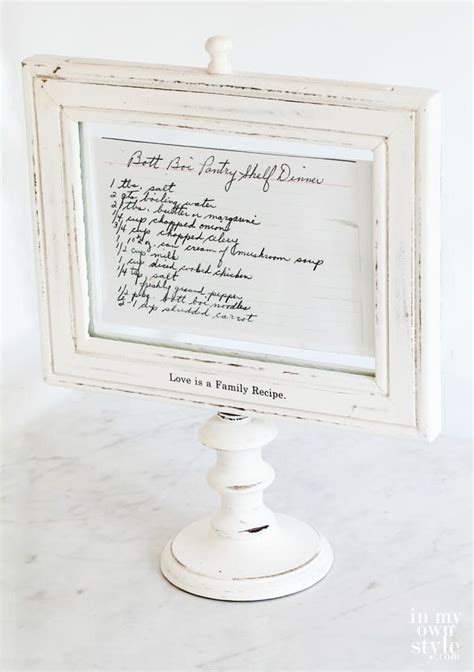 Bott Boi Pantry Shelf Dinner
1 tbs. salt
2 qts boiling water
2 tbs. butter or margarine
1/4 cup chopped onions
3/4 cup chopped celery
1 10 oz. can cream of mushroom soup
1/2 cup milk
1 cup diced cooked chicken
1/4 tsp. salt
freshly ground pepper
1/2 pkg. Bott boi noodles
1 cup shredded carrot
Love is a Family Recipe.
in my
own
style
.com